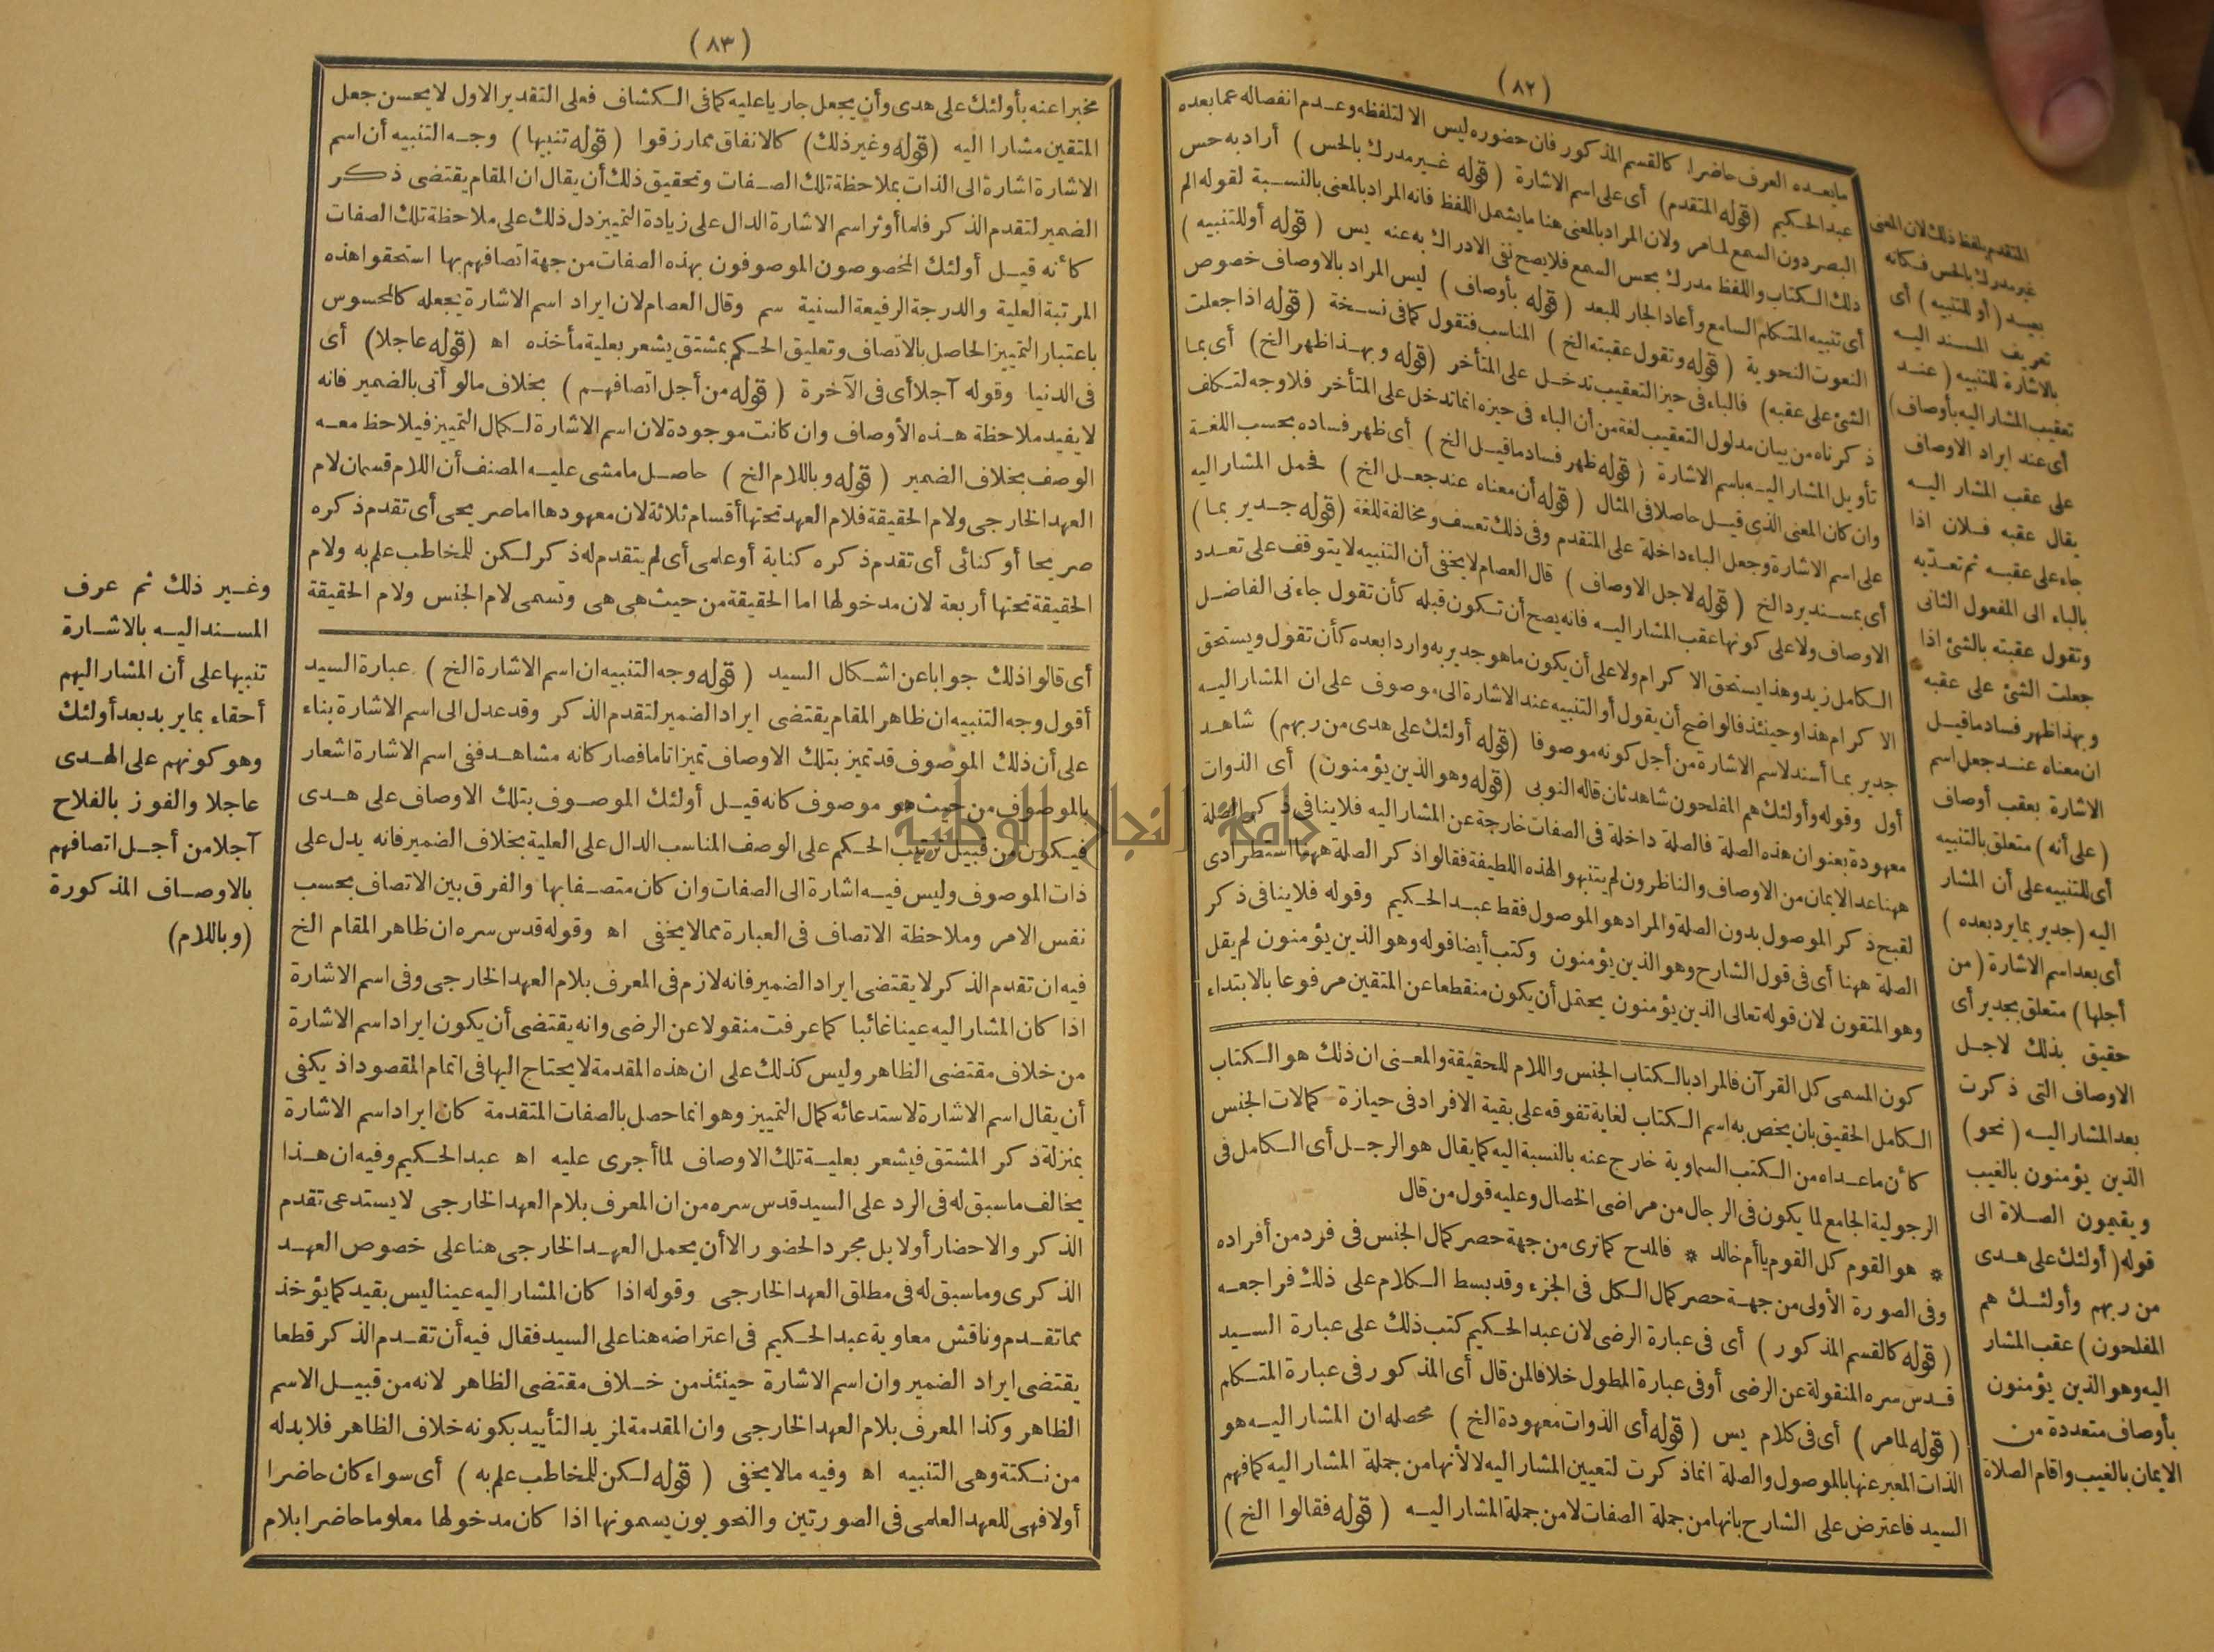 (٨٢)
مابعده العرف حاضرا كالقسم المذكور فان حضوره ليس الا لتلفظه وعدم انفصاله عما بعده
عبد الحكيم (قوله المتقدم) أى على اسم الاشارة (قوله غير مدرك بالحس) أراد به حس
البصر دون السمع لما مر ولان المراد بالمعنى هنا ما يشمل اللفظ فانه المراد بالمعنى بالنسبة لقوله الم
ذلك الكتاب واللفظ مدرك بحس السمع فلا يصح نفى الادراك به عنه يس (قوله أو للتنبيه)
أى تنبيه المتكلم السامع وأعاد الجار للبعد (قوله بأوصاف) ليس المراد بالاوصاف خصوص
النعوت النحوية (قوله وتقول عقبته الخ) المناسب فتقول كما فى نسخة (قوله اذا جعلت
الشئ على عقبه) فالباء فى حيز التعقيب تدخل على المتأخر (قوله وبهذا ظهر الخ) أى بما
ذكرناه من بيان مدلول التعقيب لغة من أن الباء فى حيزه انما تدخل على المتأخر فلا وجه لتكلف
تأويل المشار اليه باسم الاشارة (قوله ظهر فساد ما قيل الخ) أى ظهر فساده بحسب اللغة
وان كان المعنى الذى قيل حاصلا فى المثال (قوله أن معناه عند جعل الخ) فحمل المشار اليه
على اسم الاشارة وجعل الباء داخلة على المتقدم وفى ذلك تعسف ومخالفة للغة (قوله جدير بما)
أى بمسند يرد الخ (قوله لاجل الاوصاف) قال العصام لا يخفى أن التنبيه لا يتوقف على تعدد
الاوصاف ولا على كونها عقب المشار اليه فانه يصح أن تكون قبله كأن تقول جاءنى الفاضل
الكامل زيد وهذا يستحق الا كرام ولا على أن يكون ما هو جدير به واردا بعده كأن تقول ويستحق
الا كرام هذا وحينئذ فالواضح أن يقول أو التنبيه عند الاشارة الى موصوف على ان المشار اليه
جدير بما أسند لاسم الاشارة من أجل كونه موصوفا (قوله أولئك على هدى من ربهم) شاهد
أول وقوله وأولئك هم المفلحون شاهد ثان قاله النوبى (قوله وهو الذين يؤمنون) أى الذوات
معهودة بعنوان هذه الصلة فالصلة داخلة فى الصفات خارجة عن المشار اليه فلا ينافى ذكر الصلة
ههنا عد الايمان من الاوصاف والناظرون لم يتنبهوا لهذه اللطيفة فقالوا ذكر الصلة ههنا استطرادى
لقبح ذكر الموصول بدون الصلة والمراد هو الموصول فقط عبد الحكيم وقوله فلا ينافى ذكر
الصلة ههنا أى فى قول الشارح وهو الذين يؤمنون وكتب أيضا قوله وهو الذين يؤمنون لم يقل
وهو المتقون لان قوله تعالى الذين يؤمنون يحتمل أن يكون منقطعا عن المتقين مرفوعا بالابتداء
كون المسمى كل القرآن فالمراد بالكتاب الجنس واللام للحقيقة والمعنى ان ذلك هو الكتاب
الكامل الحقيق بان يخص به اسم الكتاب لغاية تفوقه على بقية الافراد فى حيازة كمالات الجنس
كأن ما عداه من الكتب السماوية خارج عنه بالنسبة اليه كما يقال هو الرجل أى الكامل فى
الرجولية الجامع لما يكون فى الرجال من مراضى الخصال وعليه قول من قال
* هو القوم كل القوم يا أم خالد * فالمدح كما ترى من جهة حصر كمال الجنس فى فرد من أفراده
وفى الصورة الأولى من جهة حصر كمال الكل فى الجزء وقد بسط الكلام على ذلك فراجعه
(قوله كالقسم المذكور) أى فى عبارة الرضى لان عبد الحكيم كتب ذلك على عبارة السيد
قدس سره المنقولة عن الرضى أو فى عبارة المطول خلافا لمن قال أى المذكور فى عبارة المتكلم
(قوله لما مر) أى فى كلام يس (قوله أى الذوات معهودة الخ) محصله ان المشار اليه هو
الذات المعبر عنها بالموصول والصلة انما ذكرت لتعيين المشار اليه لا لأنها من جملة المشار اليه كما فهم
السيد فاعترض على الشارح بانها من جملة الصفات لا من جملة المشار اليه (قوله فقالوا الخ)
المتقدم بلفظ ذلك لان المعنى
غير مدرك بالحس فكانه
بعيد (أو للتنبيه) أى
تعريف المسند اليه
بالاشارة للتنبيه (عند
تعقيب المشار اليه بأوصاف)
أى عند ايراد الاوصاف
على عقب المشار اليه
يقال عقبه فلان اذا
جاء على عقبه ثم تعديه
بالباء الى المفعول الثانى
وتقول عقبته بالشئ اذا
جعلت الشئ على عقبه
وبهذا ظهر فساد ما قيل
ان معناه عند جعل اسم
الاشارة بعقب أوصاف
(على أنه) متعلق بالتنبيه
أى للتنبيه على أن المشار
اليه (جدير بما يرد بعده)
أى بعد اسم الاشارة (من
أجلها) متعلق بجدير أى
حقيق بذلك لاجل
الاوصاف التى ذكرت
بعد المشار اليه (نحو)
الذين يؤمنون بالغيب
ويقيمون الصلاة الى
قوله (أولئك على هدى
من ربهم وأولئك هم
المفلحون) عقب المشار
اليه وهو الذين يؤمنون
بأوصاف متعددة من
الايمان بالغيب واقام الصلاة
(٨٣)
مخبرا عنه بأولئك على هدى وأن يجعل جاريا عليه كما فى الكشاف فعلى التقدير الاول لا يحسن جعل
المتقين مشارا اليه (قوله وغير ذلك) كالانفاق مما رزقوا (قوله تنبيها) وجه التنبيه أن اسم
الاشارة اشارة الى الذات بملاحظة تلك الصفات وتحقيق ذلك أن يقال ان المقام يقتضى ذكر
الضمير لتقدم الذكر فلما أوثر اسم الاشارة الدال على زيادة التمييز دل ذلك على ملاحظة تلك الصفات
كأنه قيل أولئك المخصوصون الموصوفون بهذه الصفات من جهة اتصافهم بها استحقوا هذه
المرتبة العلية والدرجة الرفيعة السنية سم وقال العصام لان ايراد اسم الاشارة يجعله كالمحسوس
باعتبار التمييز الحاصل بالاتصاف وتعليق الحكم بمشتق يشعر بعلية مأخذه اه (قوله عاجلا) أى
فى الدنيا وقوله آجلا أى فى الآخرة (قوله من أجل اتصافهم) بخلاف ما لو أتى بالضمير فانه
لا يفيد ملاحظة هذه الأوصاف وان كانت موجودة لان اسم الاشارة لكمال التمييز فيلاحظ معه
الوصف بخلاف الضمير (قوله وباللام الخ) حاصل ما مشى عليه المصنف أن اللام قسمان لام
العهد الخارجى ولام الحقيقة فلام العهد تحتها أقسام ثلاثة لان معهودها اما صريحى أى تقدم ذكره
صريحا أو كنائى أى تقدم ذكره كناية أو علمى أى لم يتقدم له ذكر لكن للمخاطب علم به ولام
الحقيقة تحتها أربعة لان مدخولها اما الحقيقة من حيث هى هى وتسمى لام الجنس ولام الحقيقة
أى قالوا ذلك جوابا عن اشكال السيد (قوله وجه التنبيه ان اسم الاشارة الخ) عبارة السيد
أقول وجه التنبيه ان ظاهر المقام يقتضى ايراد الضمير لتقدم الذكر وقد عدل الى اسم الاشارة بناء
على أن ذلك الموصوف قد تميز بتلك الاوصاف تميزا تاما فصار كانه مشاهد ففى اسم الاشارة اشعار
بالموصوف من حيث هو موصوف كانه قيل أولئك الموصوف بتلك الاوصاف على هدى
فيكون من قبيل ترتيب الحكم على الوصف المناسب الدال على العلية بخلاف الضمير فانه يدل على
ذات الموصوف وليس فيه اشارة الى الصفات وان كان متصفا بها والفرق بين الاتصاف بحسب
نفس الامر وملاحظة الاتصاف فى العبارة مما لا يخفى اه وقوله قدس سره ان ظاهر المقام الخ
فيه ان تقدم الذكر لا يقتضى ايراد الضمير فانه لازم فى المعرف بلام العهد الخارجى وفى اسم الاشارة
اذا كان المشار اليه عينا غائبا كما عرفت منقولا عن الرضى وانه يقتضى أن يكون ايراد اسم الاشارة
من خلاف مقتضى الظاهر وليس كذلك على ان هذه المقدمة لا يحتاج اليها فى اتمام المقصود اذ يكفى
أن يقال اسم الاشارة لاستدعائه كمال التمييز وهو انما حصل بالصفات المتقدمة كان ايراد اسم الاشارة
بمنزلة ذكر المشتق فيشعر بعلية تلك الاوصاف لما أجرى عليه اه عبد الحكيم وفيه ان هذا
يخالف ما سبق له فى الرد على السيد قدس سره من ان المعرف بلام العهد الخارجى لا يستدعى تقدم
الذكر والاحضار أولا بل مجرد الحضور الا أن يحمل العهد الخارجى هنا على خصوص العهد
الذكرى وما سبق له فى مطلق العهد الخارجى وقوله اذا كان المشار اليه عينا ليس بقيد كما يؤخذ
مما تقدم وناقش معاوية عبد الحكيم فى اعتراضه هنا على السيد فقال فيه أن تقدم الذكر قطعا
يقتضى ايراد الضمير وان اسم الاشارة حينئذ من خلاف مقتضى الظاهر لانه من قبيل الاسم
الظاهر وكذا المعرف بلام العهد الخارجى وان المقدمة لمزيد التأييد بكونه خلاف الظاهر فلا بد له
من نكتة وهى التنبيه اه وفيه ما لا يخفى (قوله لكن للمخاطب علم به) أى سواء كان حاضرا
أولا فهى للعهد العلمى فى الصورتين والنحويون يسمونها اذا كان مدخولها معلوما حاضرا بلام
وغير ذلك ثم عرف
المسند اليه بالاشارة
تنبيها على أن المشار اليهم
أحقاء بما يرد بعد أولئك
وهو كونهم على الهدى
عاجلا والفوز بالفلاح
آجلا من أجل اتصافهم
بالاوصاف المذكورة
(وباللام)
جامعة النجاح الوطنية